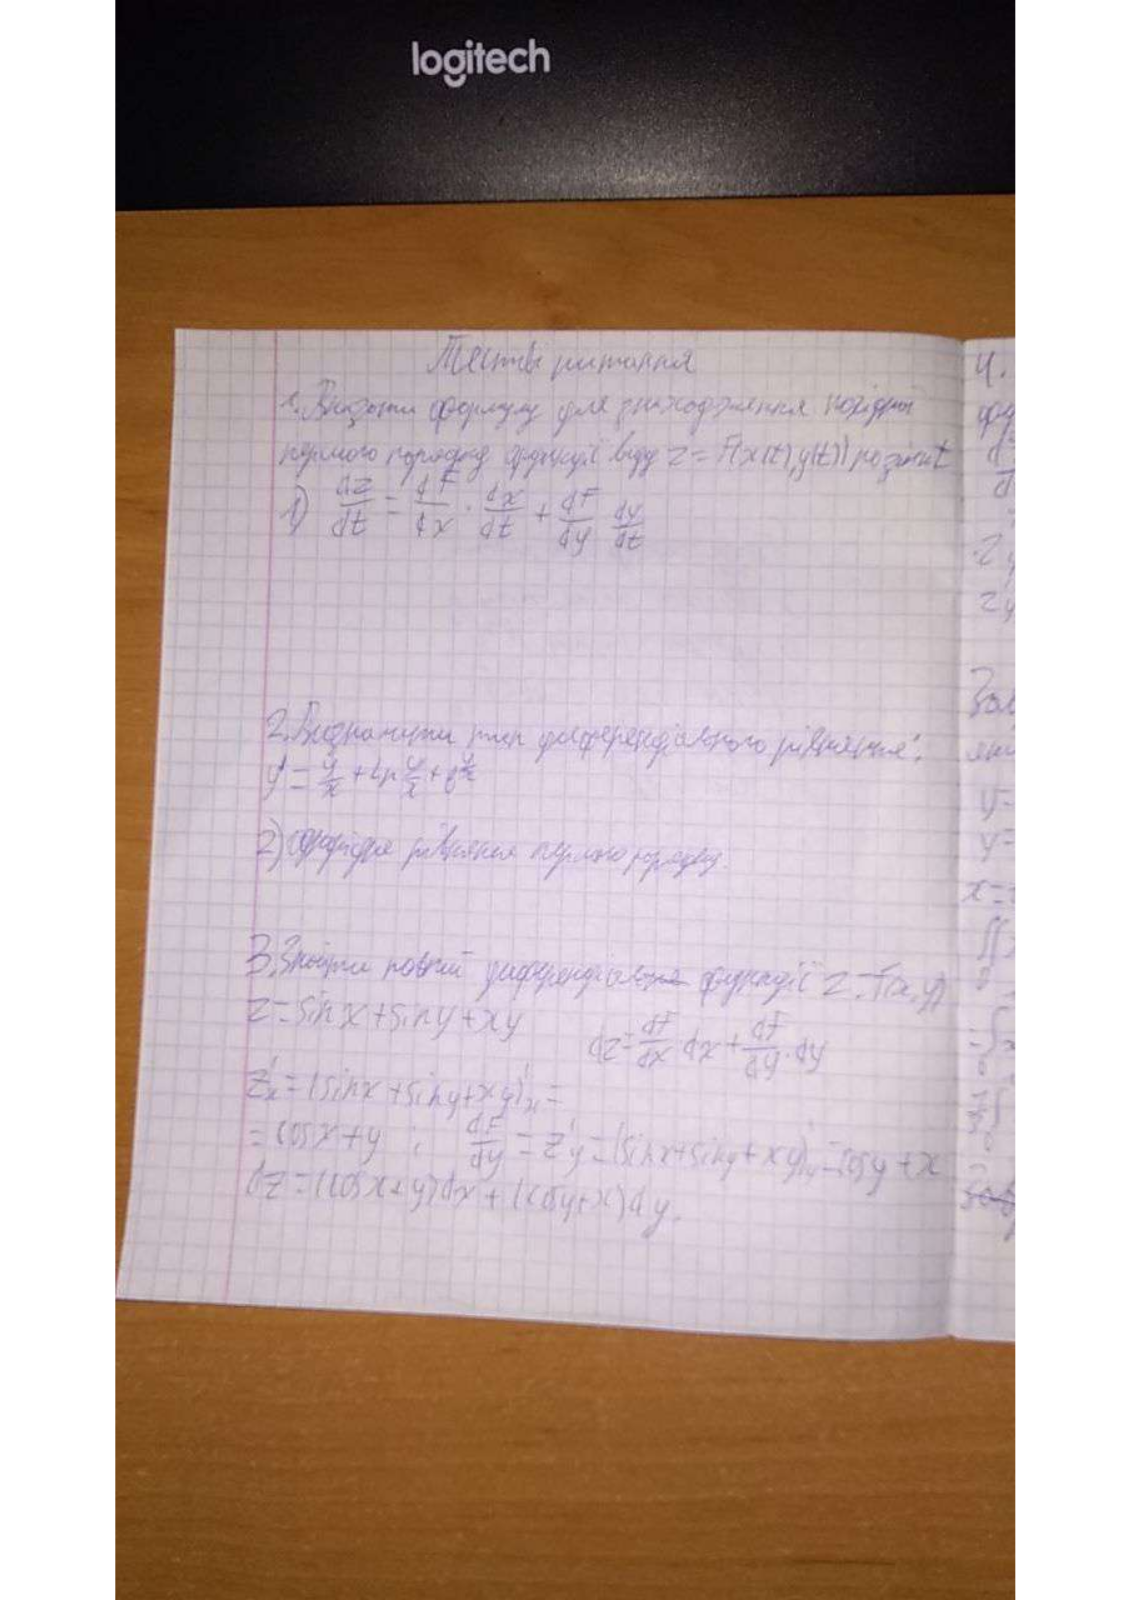 logitech
Тестві питання
1. Вказати формулу для знаходження похідної
першого порядку функції виду z = F(x(t), y(t)) по змінній t
1) dz/dt = dF/dx · dx/dt + dF/dy dy/dt
2. Визначити тип диференціального рівняння:
y' = y/x + ln y/x + e^(y/x)
2) однорідне рівняння першого порядку.
3. Знайти повний диференціал функції z = F(x, y)
z = sin x + sin y + xy
dz = dF/dx dx + dF/dy · dy
z'x = (sin x + sin y + xy)'x =
= cos x + y ; dF/dy = z'y = (sin x + sin y + xy)'y = cos y + x
dz = (cos x + y)dx + (cos y + x)dy.
4.